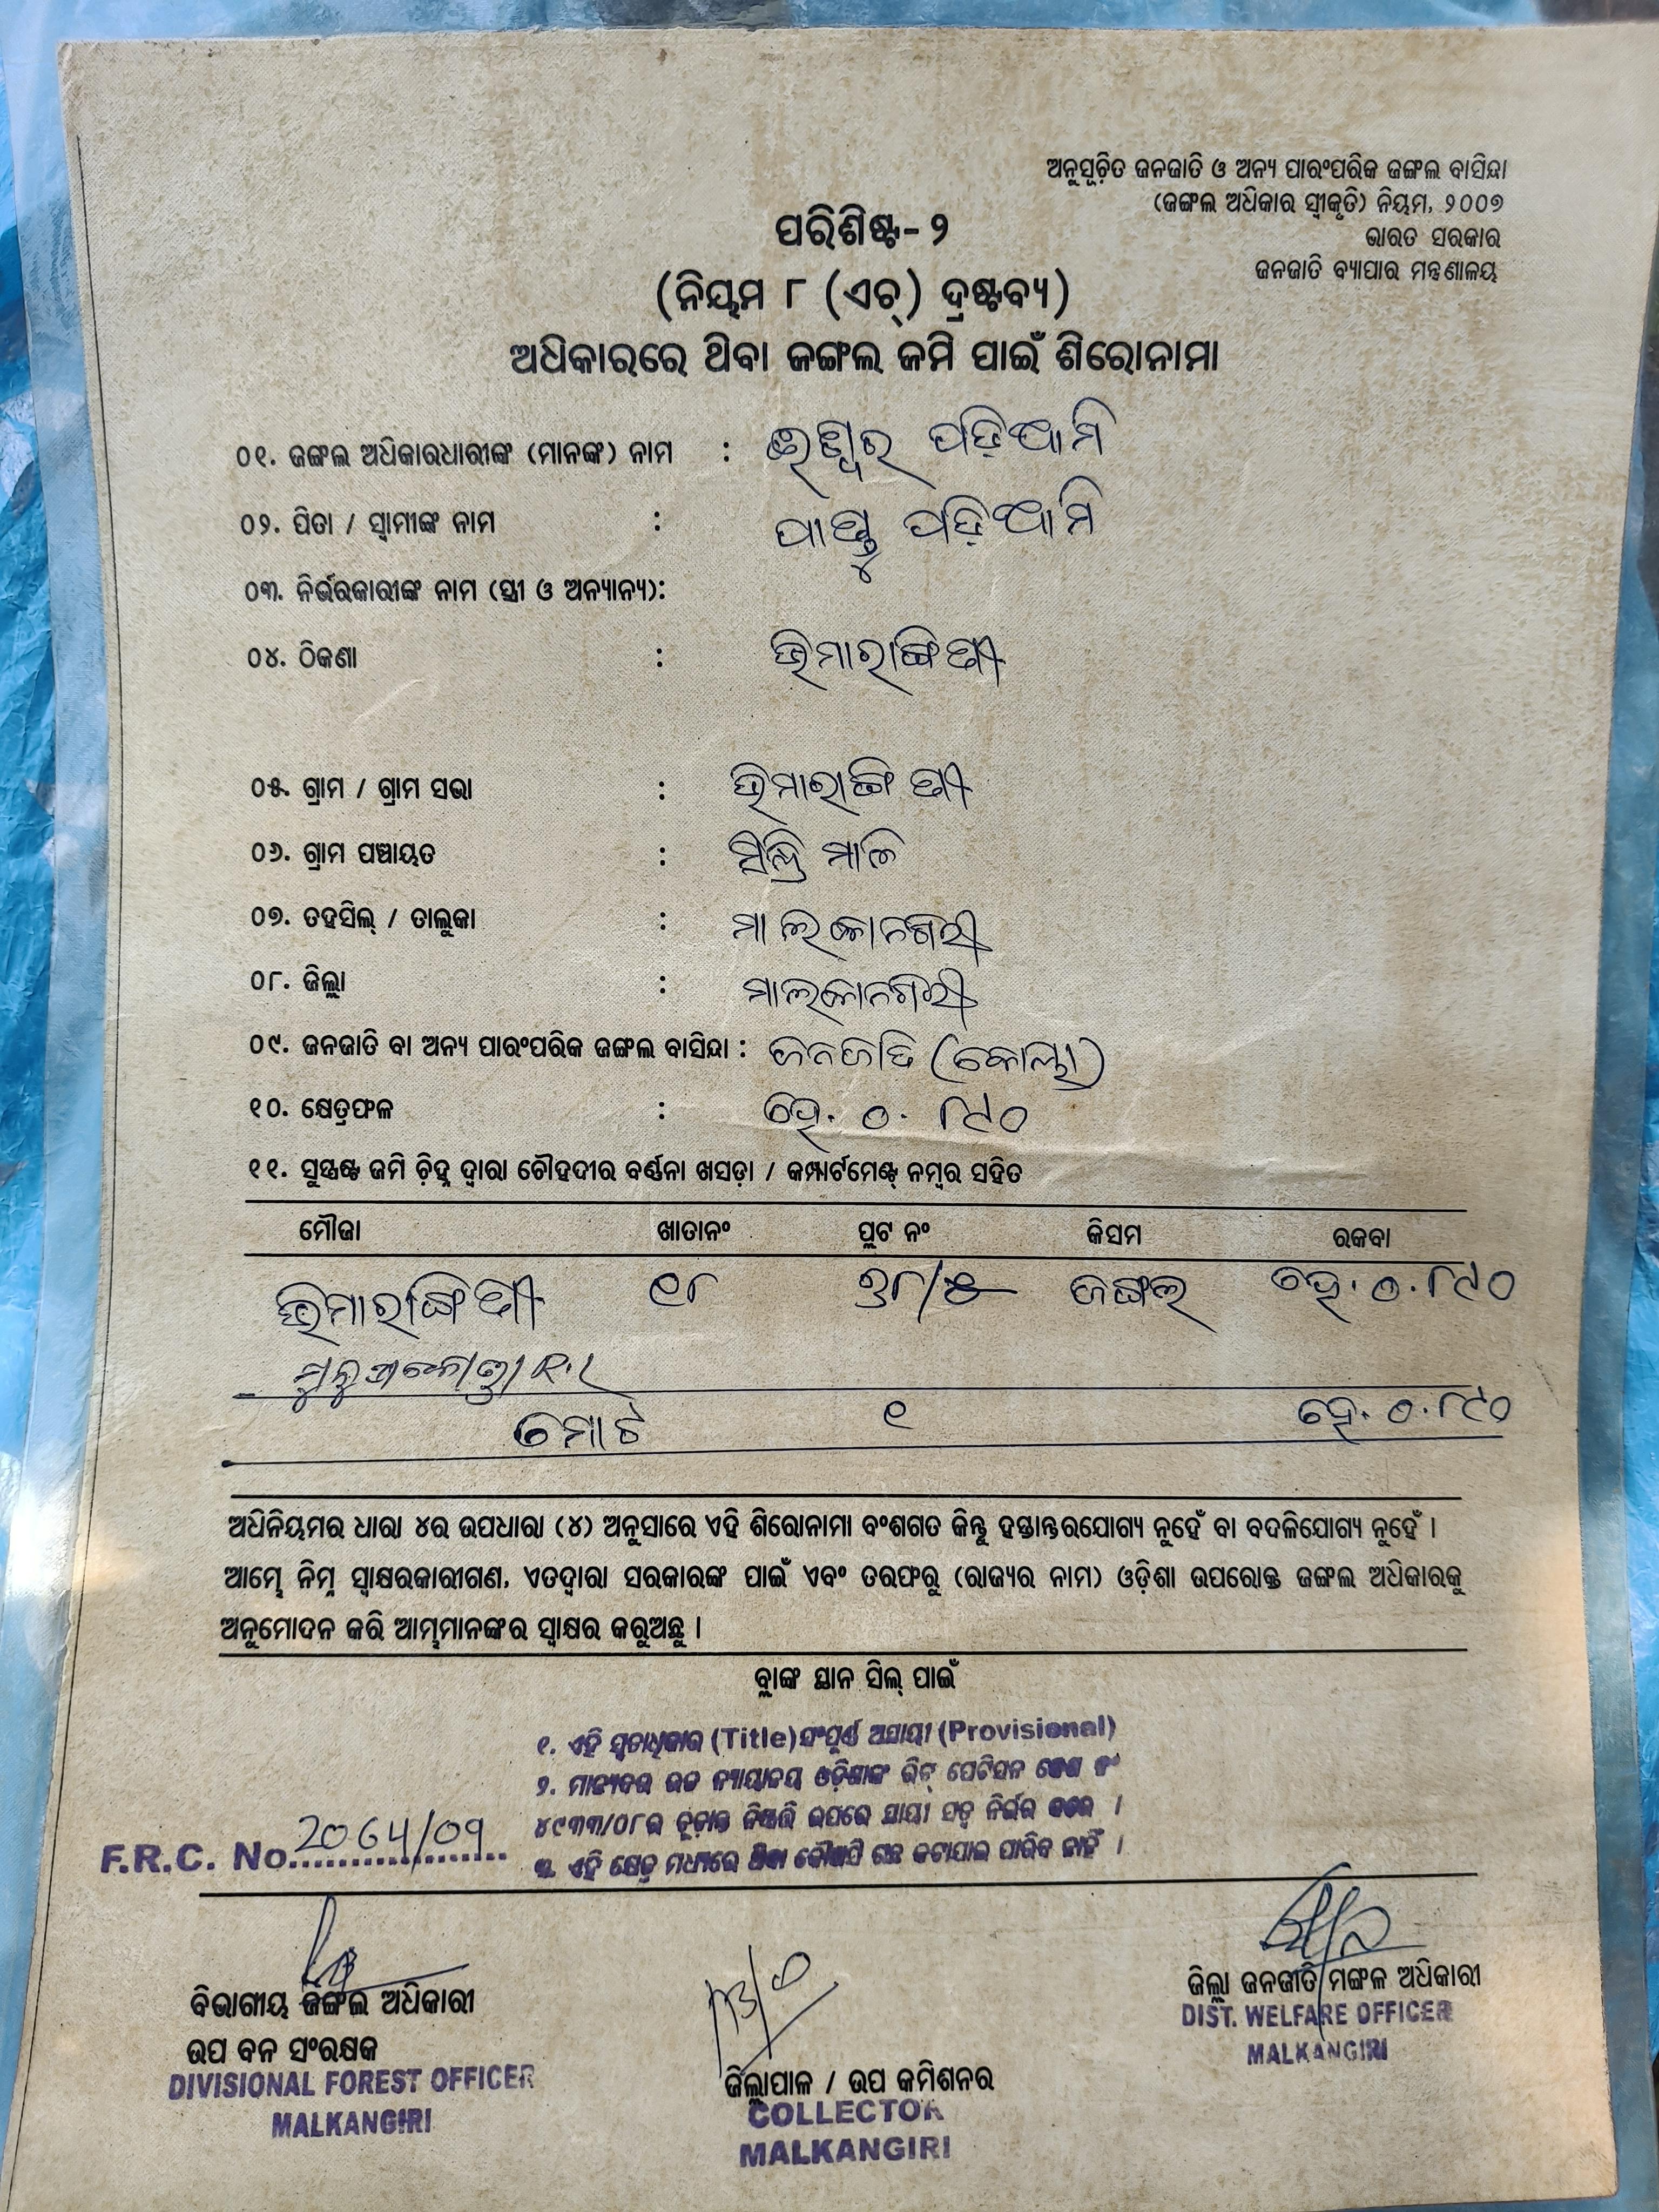 ଅନୁସୂଚିତ ଜନଜାତି ଓ ଅନ୍ୟ ପାରଂପରିକ ଜଙ୍ଗଲ ବାସିନ୍ଦା
(ଜଙ୍ଗଲ ଅଧିକାର ସ୍ୱୀକୃତି) ନିୟମ, ୨୦୦୭
ଭାରତ ସରକାର
ଜନଜାତି ବ୍ୟାପାର ମନ୍ତ୍ରଣାଳୟ
ପରିଶିଷ୍ଟ-୨
(ନିୟମ ୮ (ଏଚ୍) ଦ୍ରଷ୍ଟବ୍ୟ)
ଅଧିକାରରେ ଥିବା ଜଙ୍ଗଲ ଜମି ପାଇଁ ଶିରୋନାମା
୦୧. ଜଙ୍ଗଲ ଅଧିକାରଧାରୀଙ୍କ (ମାନଙ୍କ) ନାମ : ଈଶ୍ୱର ପଡ଼ିଆମି
୦୨. ପିତା / ସ୍ୱାମୀଙ୍କ ନାମ : ପଡ଼ିଆମି
୦୩. ନିର୍ଭରକାରୀଙ୍କ ନାମ (ସ୍ତ୍ରୀ ଓ ଅନ୍ୟାନ୍ୟ):
୦୪. ଠିକଣା :
୦୫. ଗ୍ରାମ / ଗ୍ରାମ ସଭା :
୦୬. ଗ୍ରାମ ପଞ୍ଚାୟତ :
୦୭. ତହସିଲ୍ / ତାଲୁକା : ମାଲକାନଗିରୀ
୦୮. ଜିଲ୍ଲା : ମାଲକାନଗିରୀ
୦୯. ଜନଜାତି ବା ଅନ୍ୟ ପାରଂପରିକ ଜଙ୍ଗଲ ବାସିନ୍ଦା : ଜନଜାତି (କୋୟା)
୧୦. କ୍ଷେତ୍ରଫଳ : ହେ. ୦.୮୯୦
୧୧. ସୁସ୍ପଷ୍ଟ ଜମି ଚିହ୍ନ ଦ୍ୱାରା ଚୌହଦୀର ବର୍ଣ୍ଣନା ଖସଡ଼ା / କମ୍ପାର୍ଟମେଣ୍ଟ୍ ନମ୍ବର ସହିତ
ମୌଜା ଖାତାନଂ ପ୍ଲଟ ନଂ କିସମ ରକବା
୧୮ ଜଙ୍ଗଲ ହେ.୦.୮୯୦
ମୋଟ ୧ ହେ.୦.୮୯୦
ଅଧିନିୟମର ଧାରା ୪ର ଉପଧାରା (୪) ଅନୁସାରେ ଏହି ଶିରୋନାମା ବଂଶଗତ କିନ୍ତୁ ହସ୍ତାନ୍ତରଯୋଗ୍ୟ ନୁହେଁ ବା ବଦଳିଯୋଗ୍ୟ ନୁହେଁ ।
ଆମ୍ଭେ ନିମ୍ନ ସ୍ୱାକ୍ଷରକାରୀଗଣ, ଏତଦ୍ୱାରା ସରକାରଙ୍କ ପାଇଁ ଏବଂ ତରଫରୁ (ରାଜ୍ୟର ନାମ) ଓଡ଼ିଶା ଉପରୋକ୍ତ ଜଙ୍ଗଲ ଅଧିକାରକୁ
ଅନୁମୋଦନ କରି ଆମ୍ଭମାନଙ୍କର ସ୍ୱାକ୍ଷର କରୁଅଛୁ ।
ବ୍ଲାଙ୍କ ସ୍ଥାନ ସିଲ୍ ପାଇଁ
୧. ଏହି ସ୍ୱତ୍ୱାଧିକାର (Title) ସଂପୂର୍ଣ୍ଣ ଅସ୍ଥାୟୀ (Provisional)
୨. ମାନ୍ୟବର ଉଚ୍ଚ ନ୍ୟାୟାଳୟ ଓଡ଼ିଶାଙ୍କ ରିଟ୍ ପେଟିସନ କେଶ ନଂ
୪୯୩୩/୦୮ର ଚୂଡ଼ାନ୍ତ ନିଷ୍ପତ୍ତି ଉପରେ ସ୍ଥାୟୀ ସତ୍ୱ ନିର୍ଭର କରେ ।
୩. ଏହି କ୍ଷେତ୍ର ମଧ୍ୟରେ ଥିବା କୌଣସି ଗଛ କଟାଯାଇ ପାରିବ ନାହିଁ ।
F.R.C. No. 2064/09
ବିଭାଗୀୟ ଜଙ୍ଗଲ ଅଧିକାରୀ
ଉପ ବନ ସଂରକ୍ଷକ
DIVISIONAL FOREST OFFICER
MALKANGIRI
ଜିଲ୍ଲାପାଳ / ଉପ କମିଶନର
COLLECTOR
MALKANGIRI
ଜିଲ୍ଲା ଜନଜାତି ମଙ୍ଗଳ ଅଧିକାରୀ
DIST. WELFARE OFFICER
MALKANGIRI